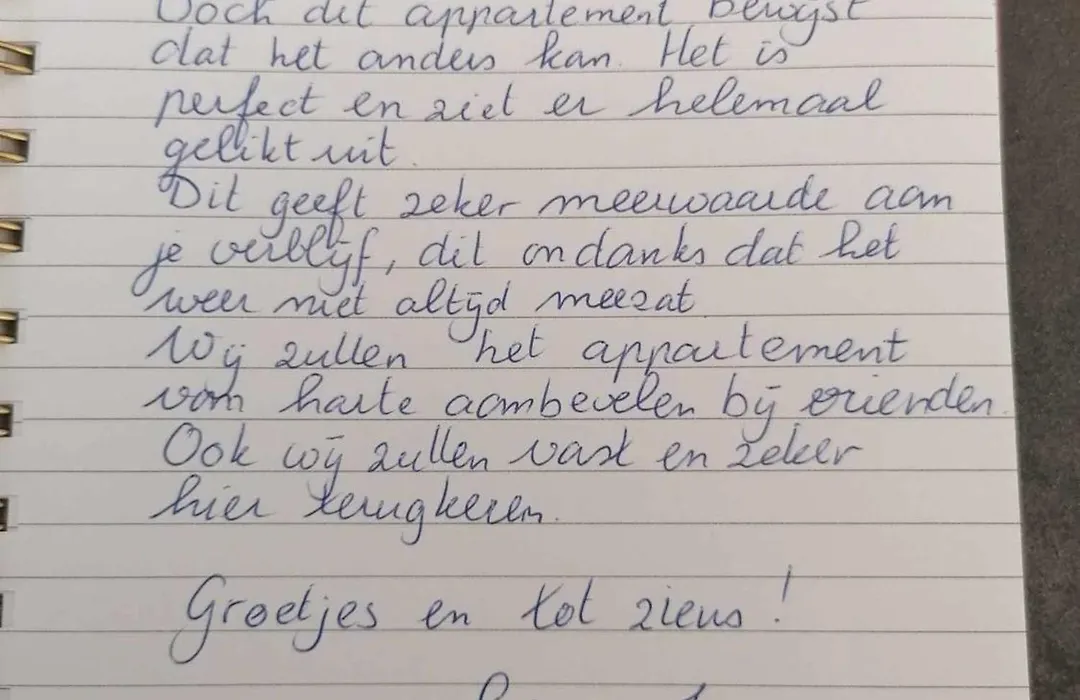 Doch dit appartement bewijst
dat het anders kan. Het is
perfect en ziet er helemaal
gelikt uit.
Dit geeft zeker meerwaarde aan
je verblijf, dit ondanks dat het
weer niet altijd meezat
Wij zullen het appartement
van harte aanbevelen bij vrienden.
Ook wij zullen vast en zeker
hier terugkeren.
Groetjes en tot ziens!